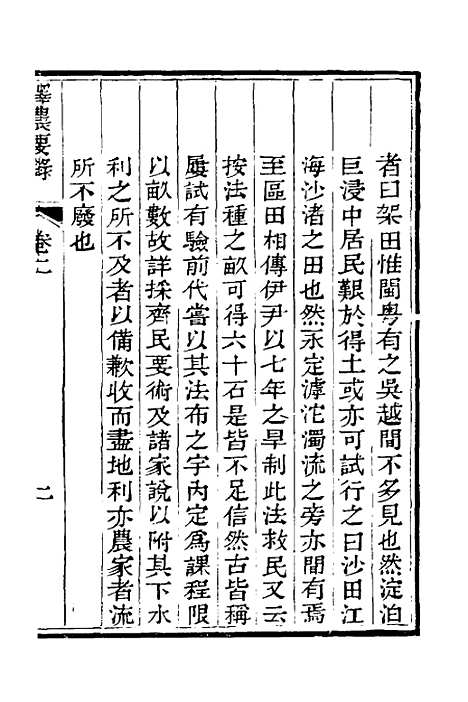 者曰架田惟閩粵有之吳越間不多見也然淀泊
巨浸中居民艱於得土或亦可試行之曰沙田江
海沙渚之田也然永定滹沱濁流之旁亦間有焉
至區田相傳伊尹以七年之旱制此法救民又云
按法種之畝可得六十石是皆不足信然古皆稱
屢試有驗前代嘗以其法布之宇內定為課程限
以畝數故詳採齊民要術及諸家說以附其下水
利之所不及者以備歉收而盡地利亦農家者流
所不廢也
澤農要錄
卷二
二